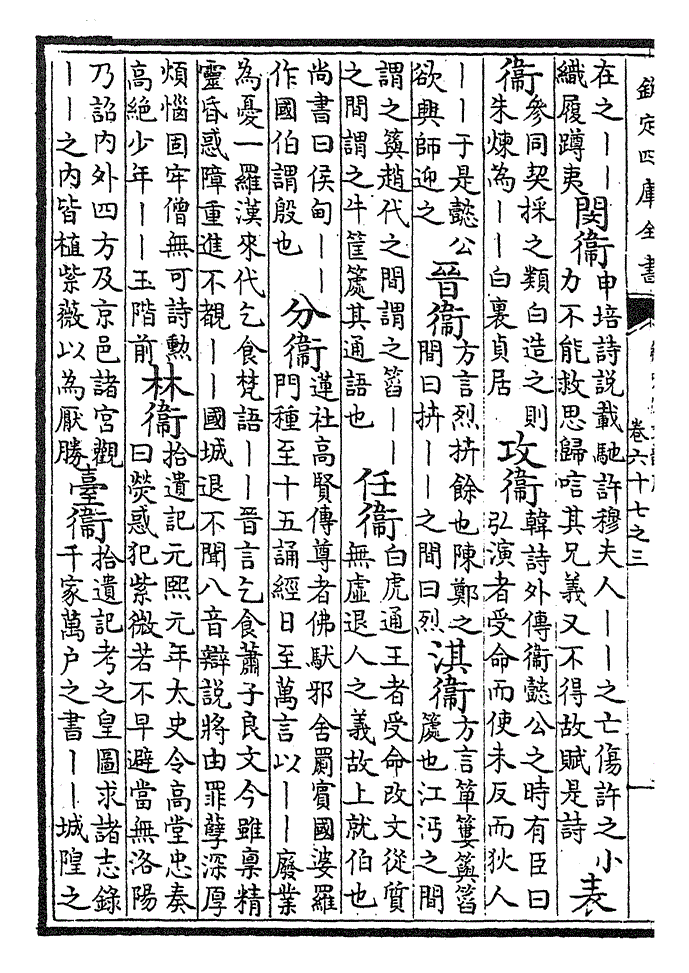 欽定四庫全書
卷六十七之三
在之——
織履蹲夷
閔衞
申培詩説載馳許穆夫人——之亡傷許之小
力不能救思歸唁其兄義又不得故賦是詩
表
衞
參同契採之類白造之則
朱煉為——白裏貞居
攻衞
韓詩外傳衞懿公之時有臣曰
弘演者受命而使未反而狄人
——于是懿公
欲興師迎之
晉衞
方言烈抍餘也陳鄭之
間曰抍——之間曰烈
淇衞
方言簞簍籅筥
籧也江沔之間
謂之籅趙代之間謂之筥——
之間謂之牛筐籧其通語也
任衞
白虎通王者受命改文從質
無虛退人之義故上就伯也
尚書曰侯甸——
作國伯謂殷也
分衞
蓮社高賢傳尊者佛馱邪舍罽賓國婆羅
門種至十五誦經日至萬言以——廢業
為憂一羅漢來代乞食梵語——晉言乞食蕭子良文今雖稟精
靈昏惑障重進不覩——國城退不聞八音辯説將由罪孽深厚
煩惱固牢僧無可詩勲
高絶少年——玉階前
林衞
拾遺記元熙元年太史令高堂忠奏
曰熒惑犯紫微若不早避當無洛陽
乃詔内外四方及京邑諸宮觀
——之内皆植紫薇以為厭勝
臺衞
拾遺記考之皇圖求諸志錄
千家萬户之書——城隍之